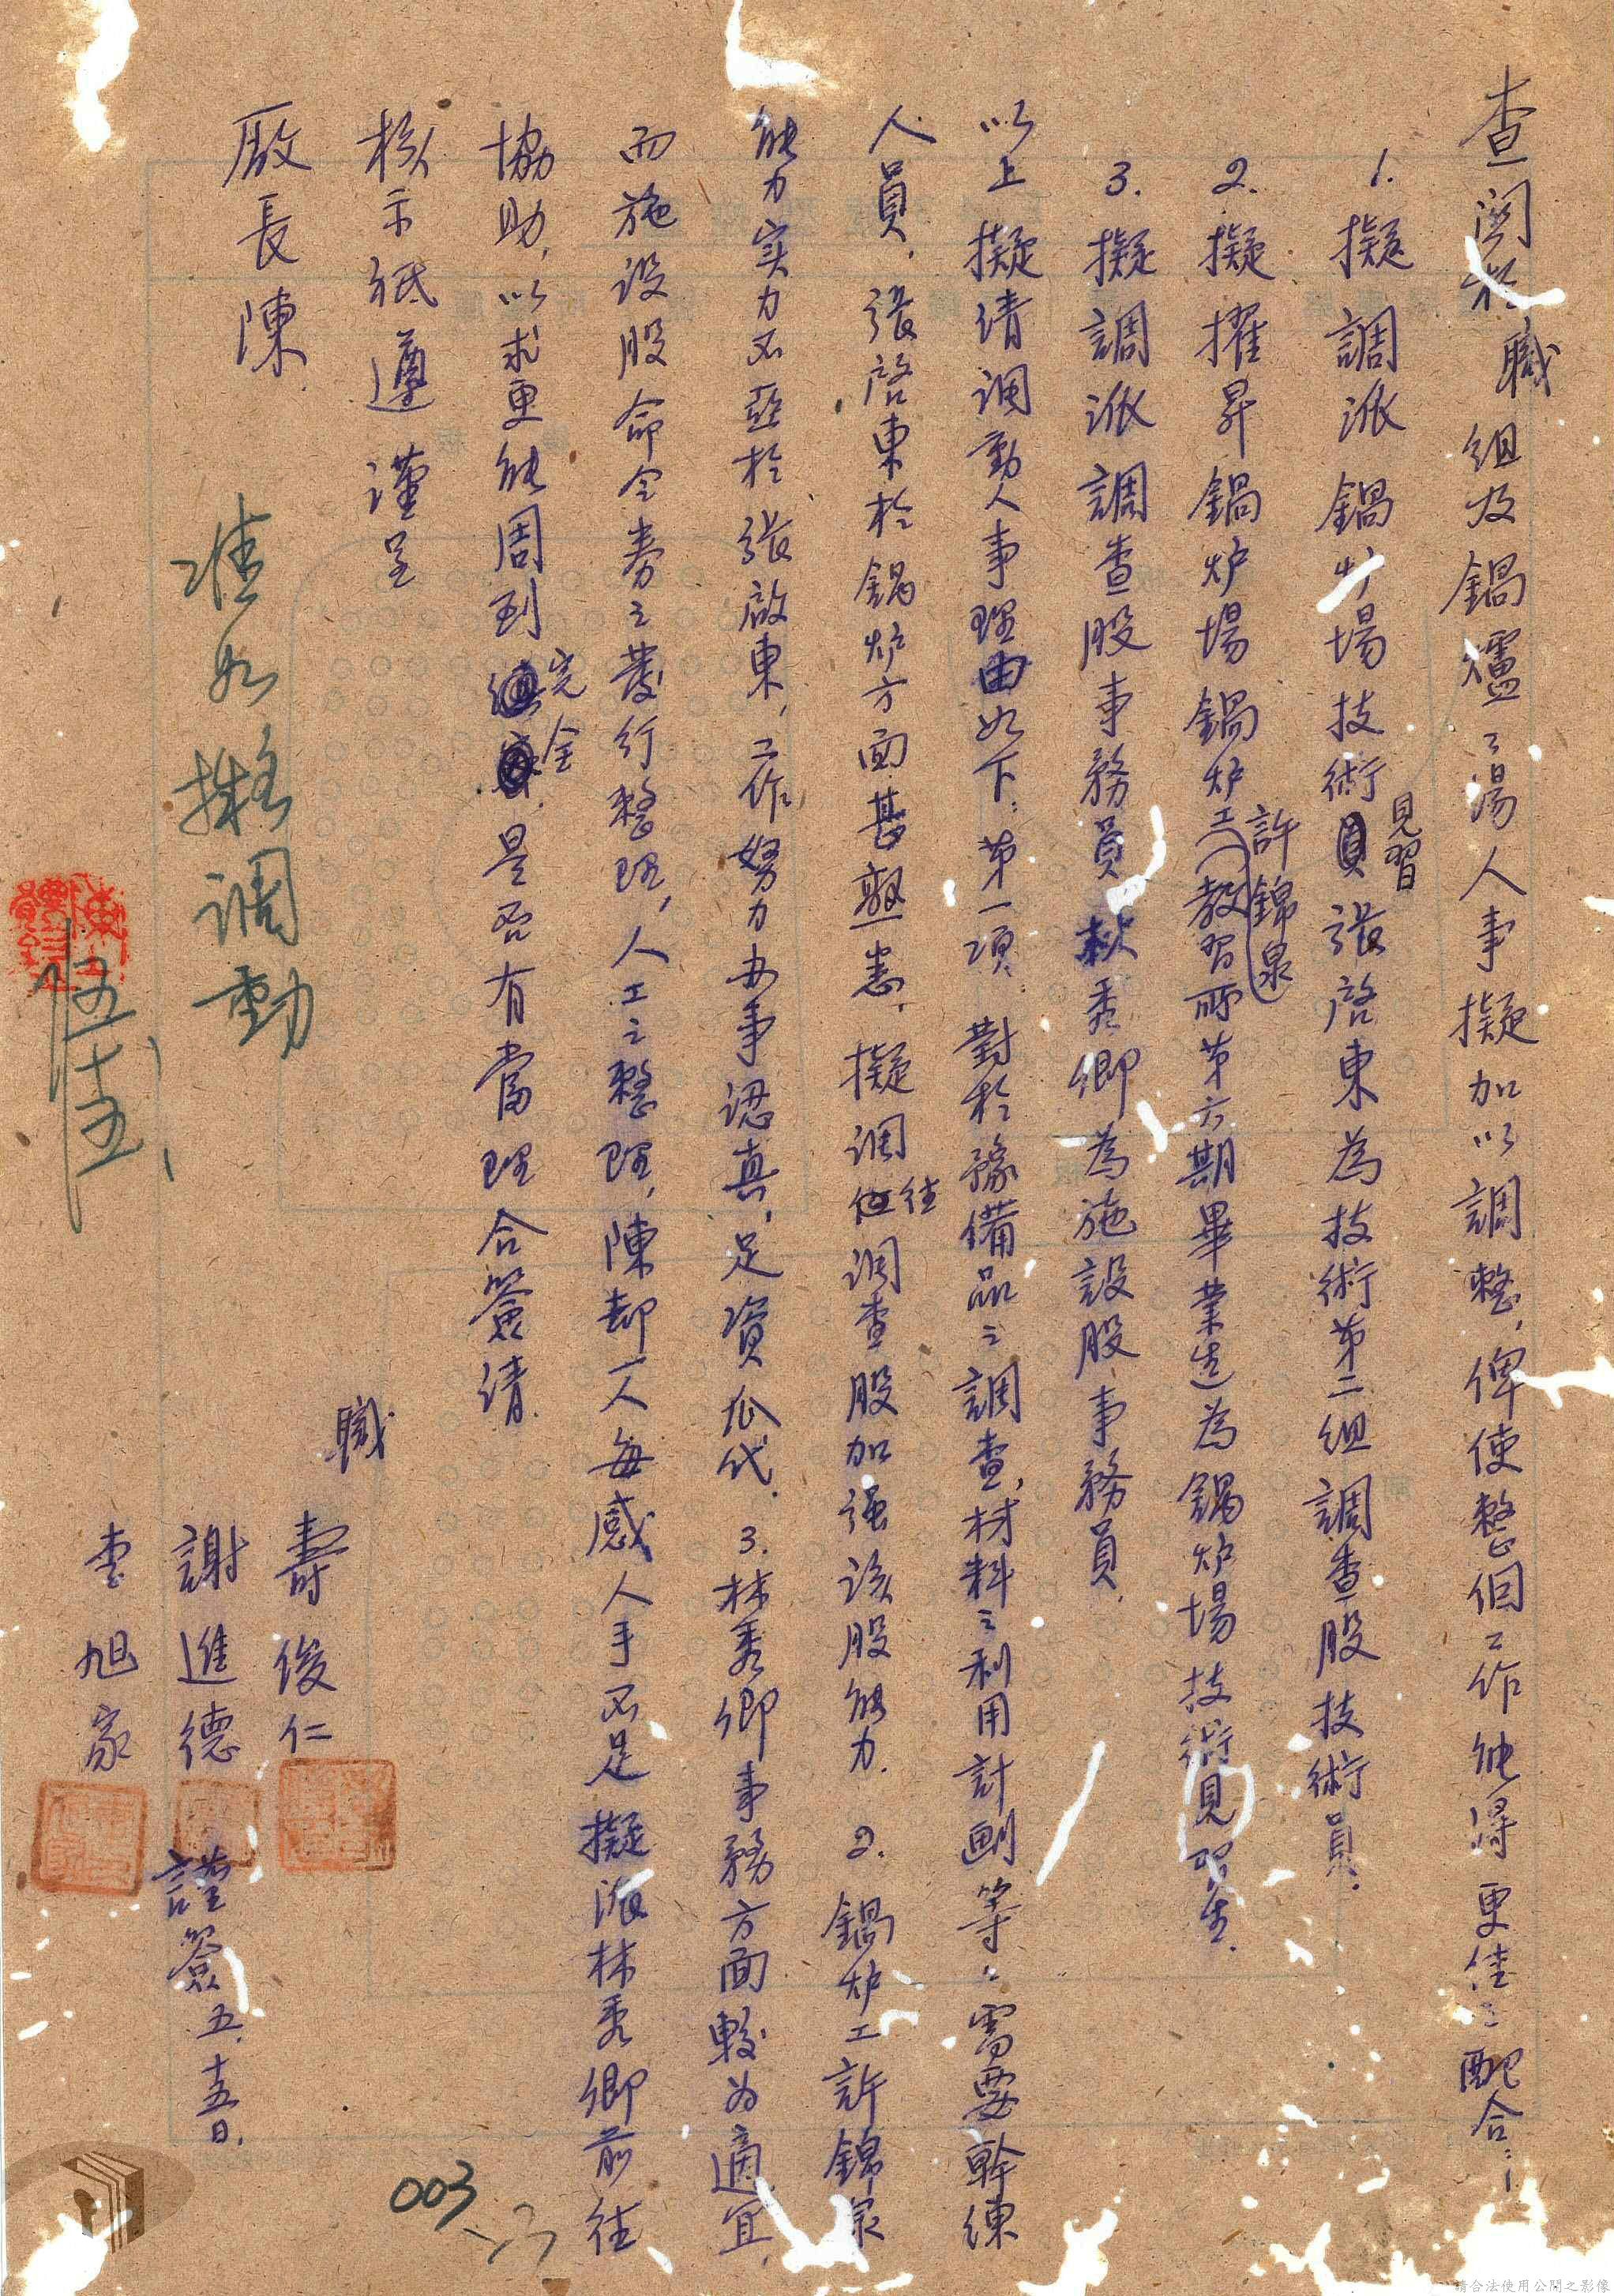 查関於職組及鍋爐工場人事擬加以調整，俾使整個工作能得更佳之配合：
1.擬調派鍋炉場技術員見習張啓東為技術第二組調查股技術員．
2.擬擢昇鍋炉場鍋炉工許錦泉（教習所第六期畢業生）為鍋炉場技術見習生．
3.擬調派調查股事務員林秀卿為施設股事務員．
以上擬請調動人事理由如下：第一項．對於豫備品之調查，材料之利用計劃等、需要幹練
人員，張啓東於鍋炉方面甚熟悉，擬調往調查股加强該股能力．2.鍋炉工許錦泉
能力実力不亞於張啟東，工作努力办事認真，足資瓜代．3.林秀卿事務方面較為適宜，
而施设股命令券之發行整理，人工之整理，陳却一人每感人手不足擬派林秀卿前往
協助，以求更能周到完全．是否有當理合簽請
核示祇遵 謹呈
廠長陳
職 壽俊仁
謝進德
李旭家
謹簽五．十五日．
准如擬調動
五、十五、
003
請合法使用公開之影像